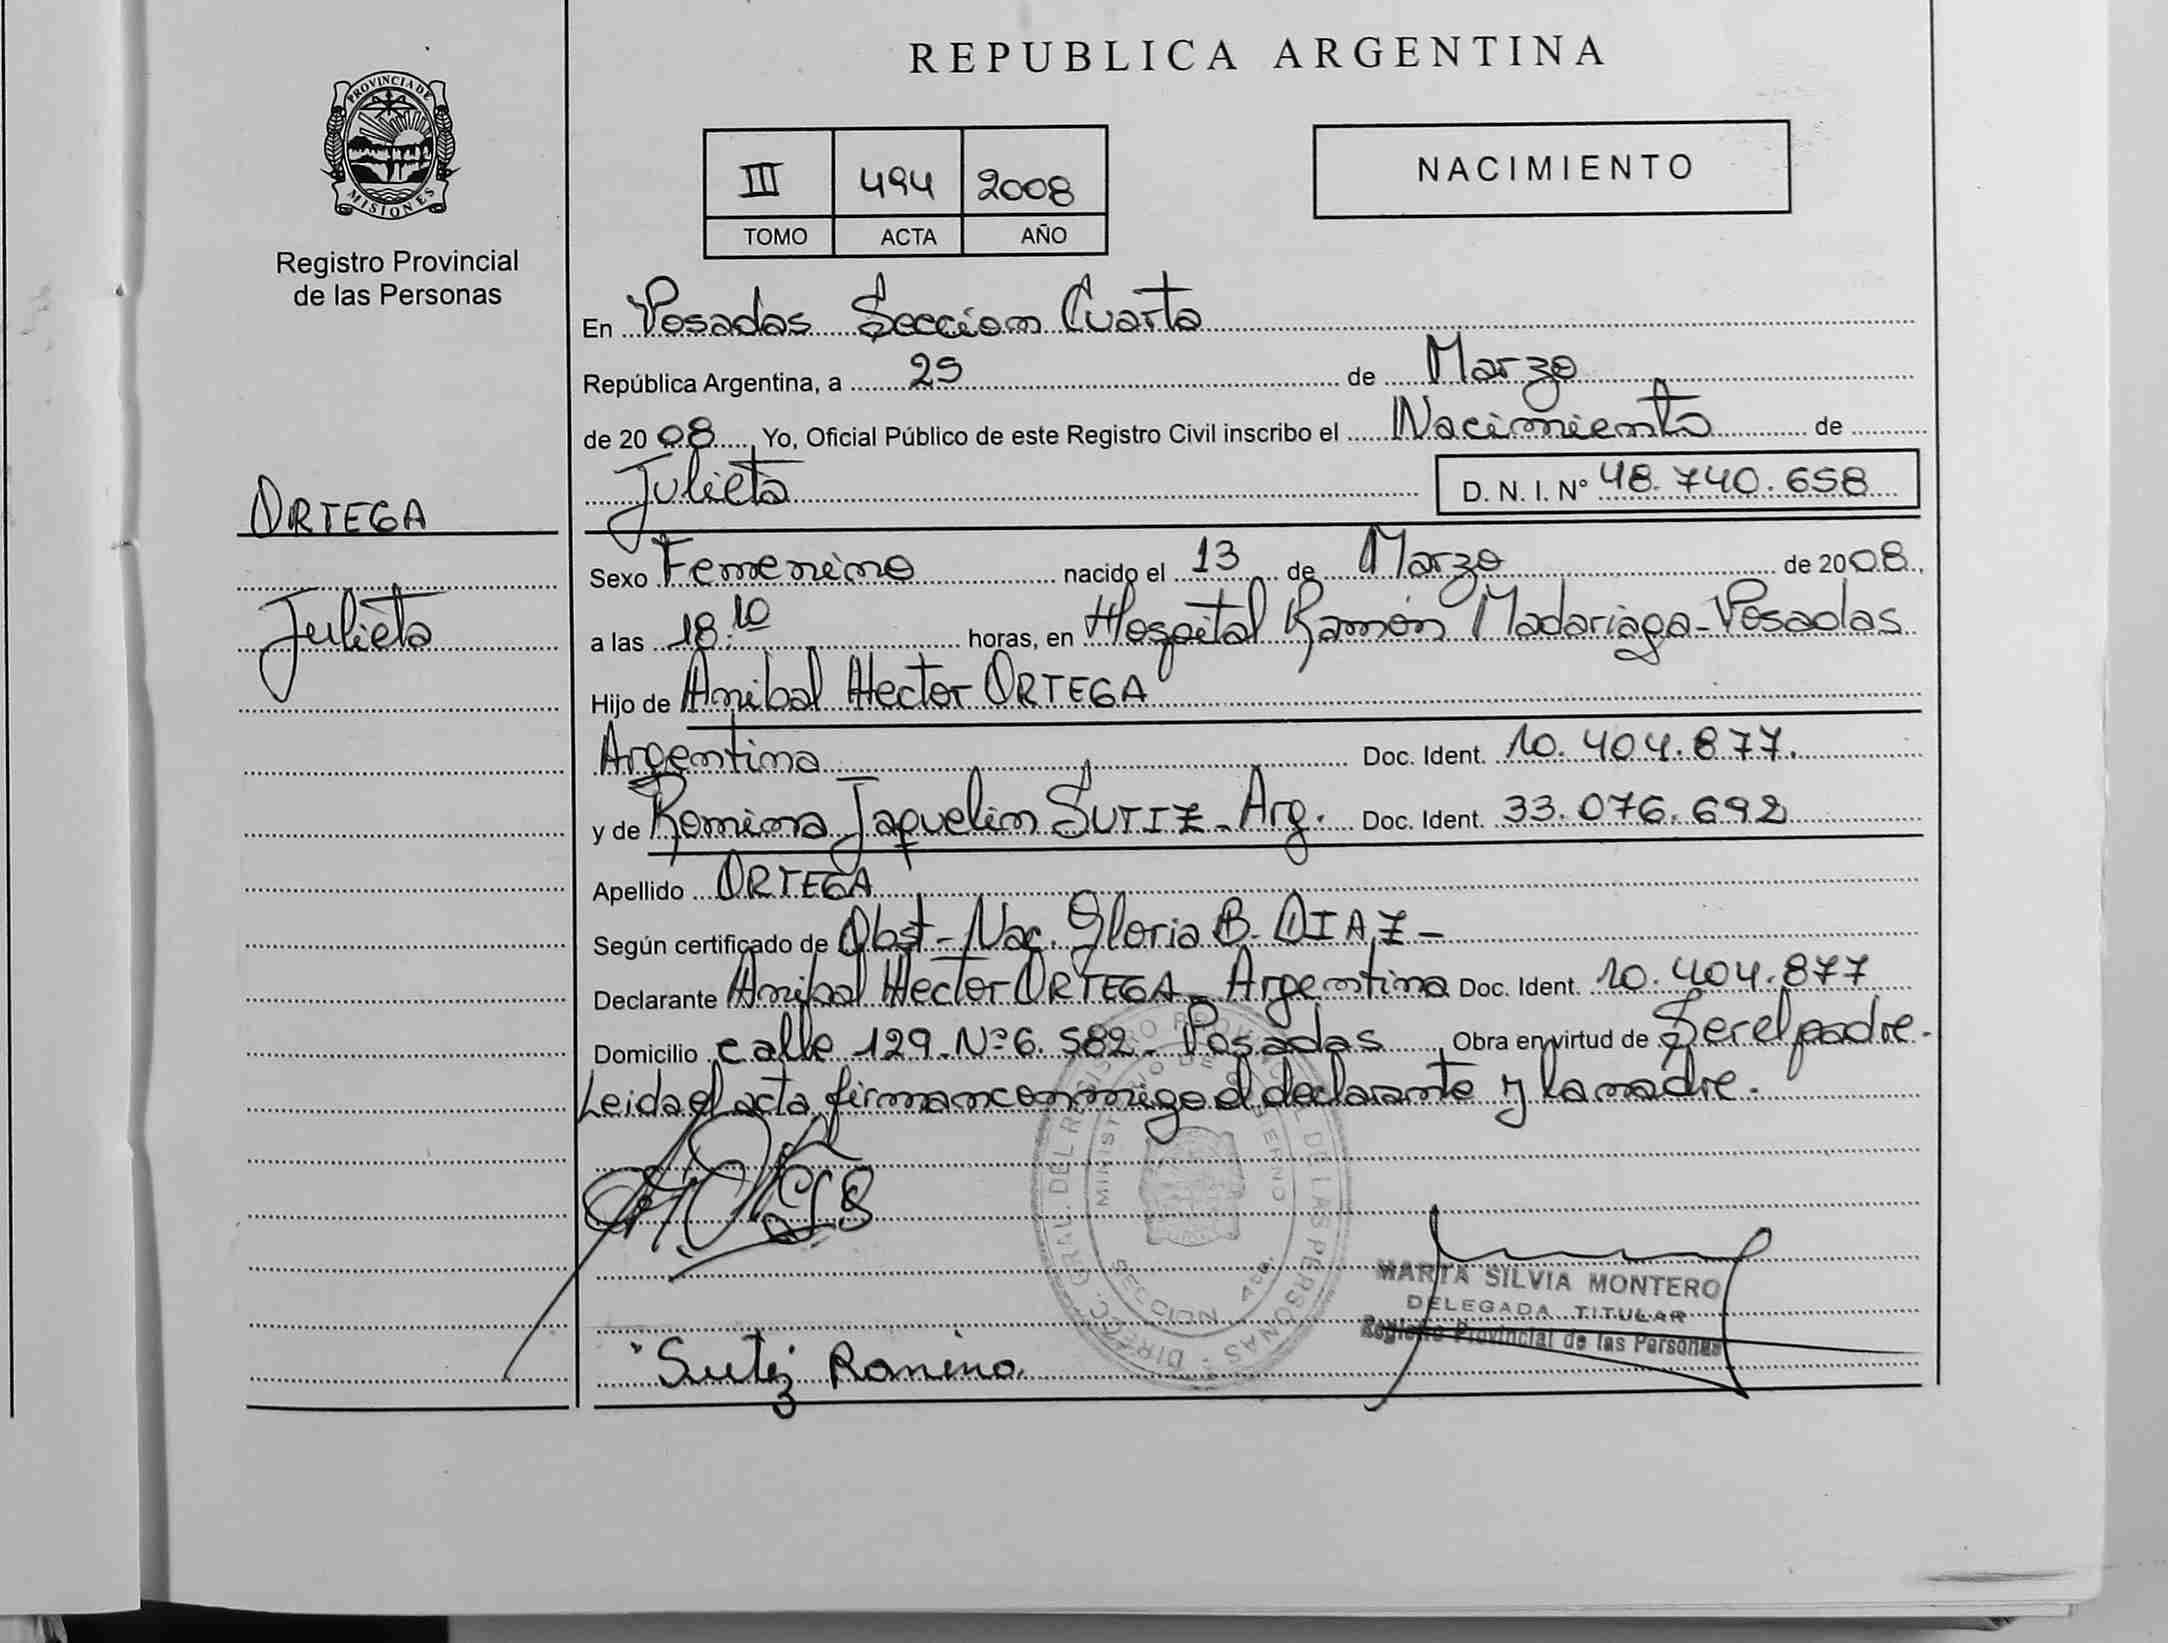 REPUBLICA ARGENTINA
PROVINCIA DE
MISIONES
Registro Provincial
de las Personas
III 494 2008
TOMO ACTA AÑO
NACIMIENTO
En Posadas Sección Cuarta
República Argentina, a 25 de Marzo
de 2008, Yo, Oficial Público de este Registro Civil inscribo el Nacimiento de
Julieta D. N. I. N° 48.740.658
ORTEGA
Julieta
Sexo Femenino nacido el 13 de Marzo de 2008,
a las 18:10 horas, en Hospital Ramón Madariaga-Posadas
Hijo de Anibal Hector ORTEGA
Argentina Doc. Ident. 10.404.877.
y de Romina Jaquelin SUTIZ - Arg. Doc. Ident. 33.076.692
Apellido ORTEGA
Según certificado de Obst-Nac. Gloria B. DIAZ-
Declarante Anibal Hector ORTEGA - Argentina Doc. Ident. 10.404.877
Domicilio calle 129 - Nº 6.582 - Posadas, Obra en virtud de Ser el padre.
Leida el acta, firman conmigo el declarante y la madre.
DIREC. GRAL. DEL REGISTRO PROVINCIAL DE LAS PERSONAS
MINISTERIO DE GOBIERNO
SECCION 4ta.
MARTA SILVIA MONTERO
DELEGADA TITULAR
Registro Provincial de las Personas
Sutiz Romina